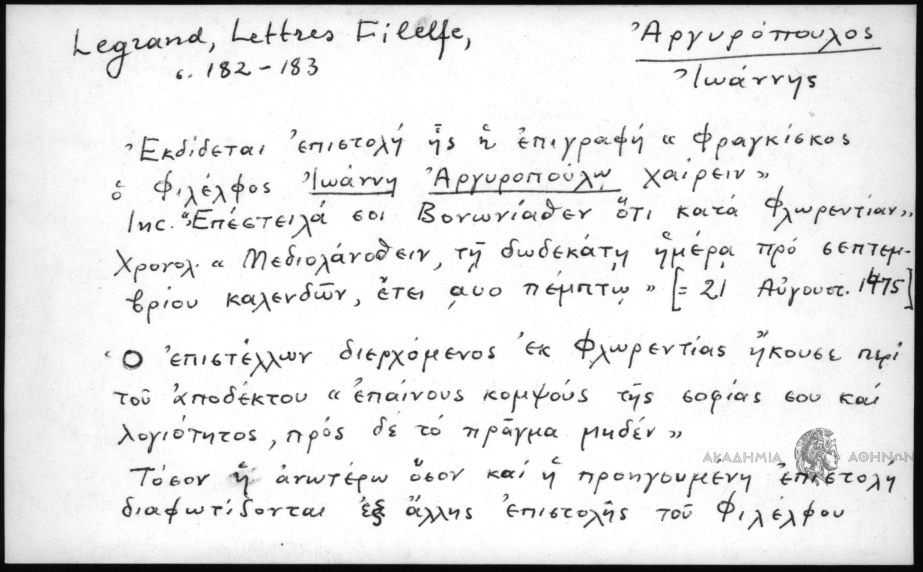 Legrand, Lettres Filelfe,
σ. 182-183
Ἀργυρόπουλος
Ἰωάννης
Ἐκδίδεται ἐπιστολή ἧς ἡ ἐπιγραφή « Φραγκίσκος
ὁ Φιλέλφος Ἰωάννῃ Ἀργυροπούλῳ χαίρειν»
Inc. "Ἐπέστειλά σοι Βονωνίαθεν ὅτι κατά Φλωρεντίαν»
Χρονολ. « Μεδιολάνοθειν, τῇ δωδεκάτῃ ἡμέρᾳ πρό σεπτεμ-
βρίου καλενδῶν, ἔτει αυο πέμπτῳ » [= 21 Αὐγουστ. 1475]
Ὁ ἐπιστέλλων διερχόμενος ἐκ Φλωρεντίας ἤκουσε περί
τοῦ ἀποδέκτου « ἐπαίνους κομψούς τῆς σοφίας σου καί
λογιότητος, πρός δέ τό πρᾶγμα μηδέν»
ΑΚΑΔΗΜΙΑ ΑΘΗΝΩΝ
Τόσον ἡ ἀνωτέρω ὅσον καί ἡ προηγουμένη ἐπιστολή
διαφωτίζονται ἐξ ἄλλης ἐπιστολῆς τοῦ Φιλέλφου